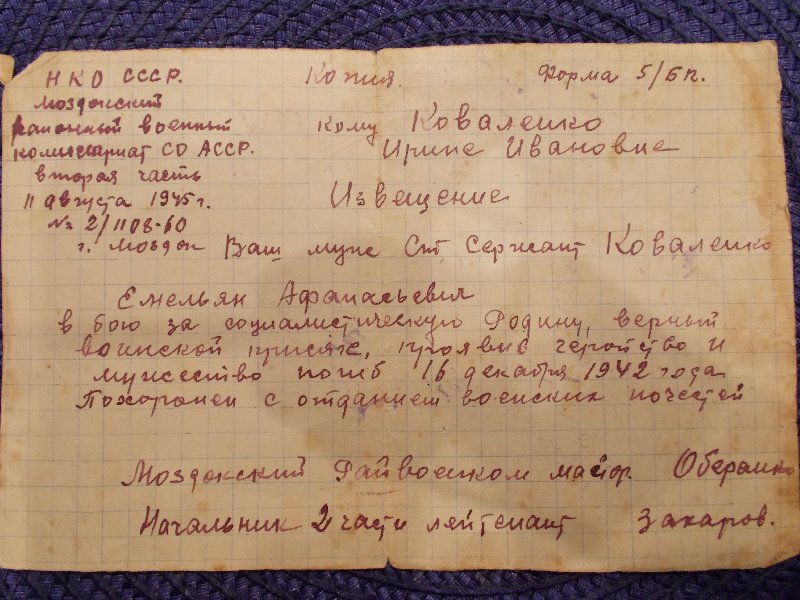 НКО СССР.
Копия.
Форма 5/БП.
Моздокский
районный военный
комиссариат СО АССР.
вторая часть
11 августа 1945 г.
№ 2/1108-60
г. Моздок
Кому Коваленко
Ирине Ивановне
Извещение
Ваш муж Ст Сержант Коваленко
Емельян Афанасьевич
в бою за социалистическую Родину, верный
воинской присяге, проявив геройство и
мужество погиб 16 декабря 1942 года
Похоронен с отданием воинских почестей
Моздокский Райвоенком майор.
Начальник 2 части лейтенант Захаров.